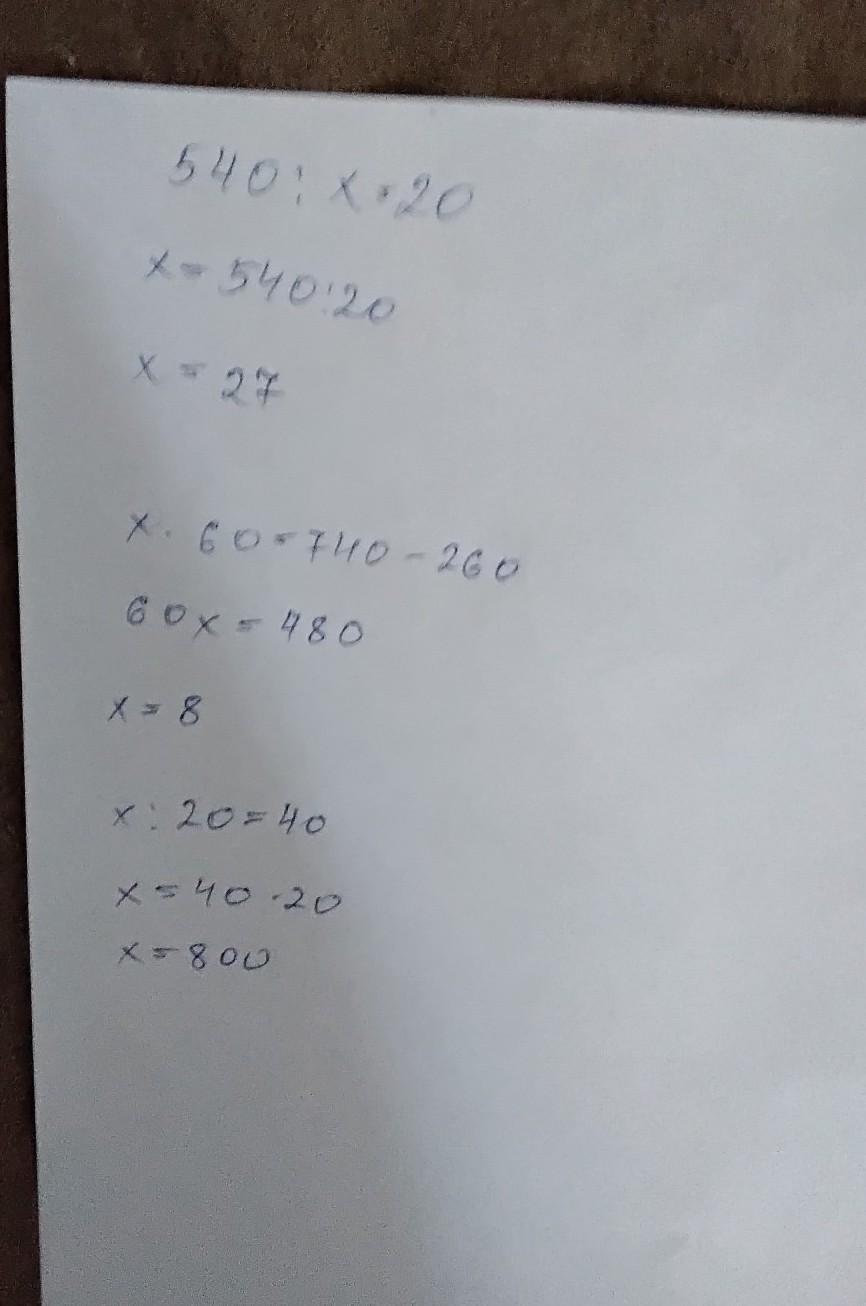 540 : x = 20
x = 540 : 20
x = 27
x · 60 = 740 - 260
60x = 480
x = 8
x : 20 = 40
x = 40 · 20
x = 800